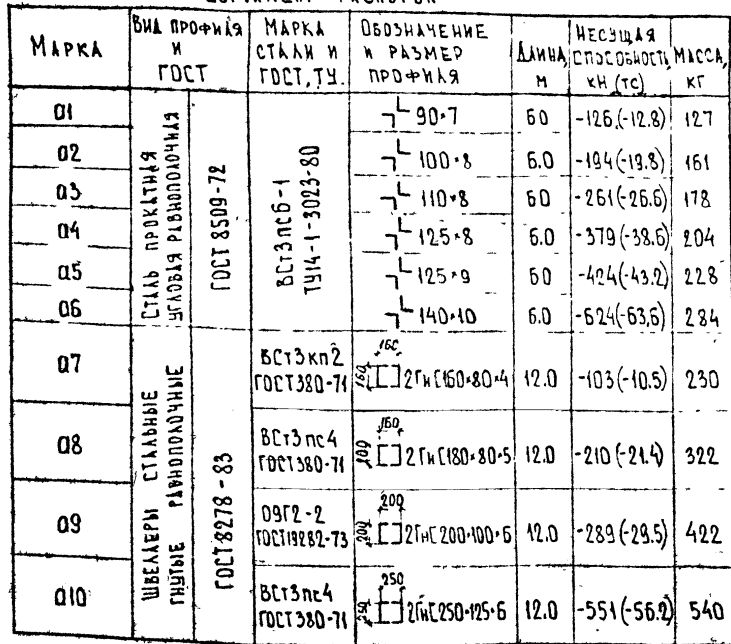 МАРКА
ВИД ПРОФИЛЯ И ГОСТ
МАРКА СТАЛИ И ГОСТ, ТУ.
ОБОЗНАЧЕНИЕ И РАЗМЕР ПРОФИЛЯ
ДЛИНА, М
НЕСУЩАЯ СПОСОБНОСТЬ КН (ТС)
МАССА, КГ
СТАЛЬ ПРОКАТНАЯ УГЛОВАЯ РАВНОПОЛОЧНАЯ
ГОСТ 8509-72
ВСт3пс6-1
ТУ14-1-3023-80
а1 90×7 6.0 -126,(-12.8) 127
а2 100×8 6.0 -194(-19.8) 161
а3 110×8 6.0 -261(-26.6) 178
а4 125×8 6.0 -379(-38.6) 204
а5 125×9 6.0 -424(-43.2) 228
а6 140×10 6.0 -624(-63,6) 284
ШВЕЛЛЕРЫ СТАЛЬНЫЕ ГНУТЫЕ РАВНОПОЛОЧНЫЕ
ГОСТ8278-83
а7 ВСт3кп2 ГОСТ380-71 160 160 2ГнС160×80×4 12.0 -103(-10.5) 230
а8 ВСт3пс4 ГОСТ380-71 160 2ГнС180×80×5 12.0 -210(-21.4) 322
а9 09Г2-2 ГОСТ19282-73 200 200 2ГнС200×100×6 12.0 -289(-29.5) 422
а10 ВСт3пс4 ГОСТ380-71 250 250 2ГнС250×125×6 12.0 -551(-56.2) 540